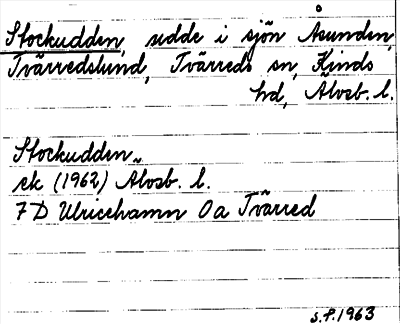 Stockudden, udde i sjön Åsunden,
Tvärredslund, Tvärreds sn, Kinds
hd, Älvsb. l.
Stockudden
ek (1962) Älvsb. l.
7D Ulricehamn 0a Tvärred
S.F. 1963